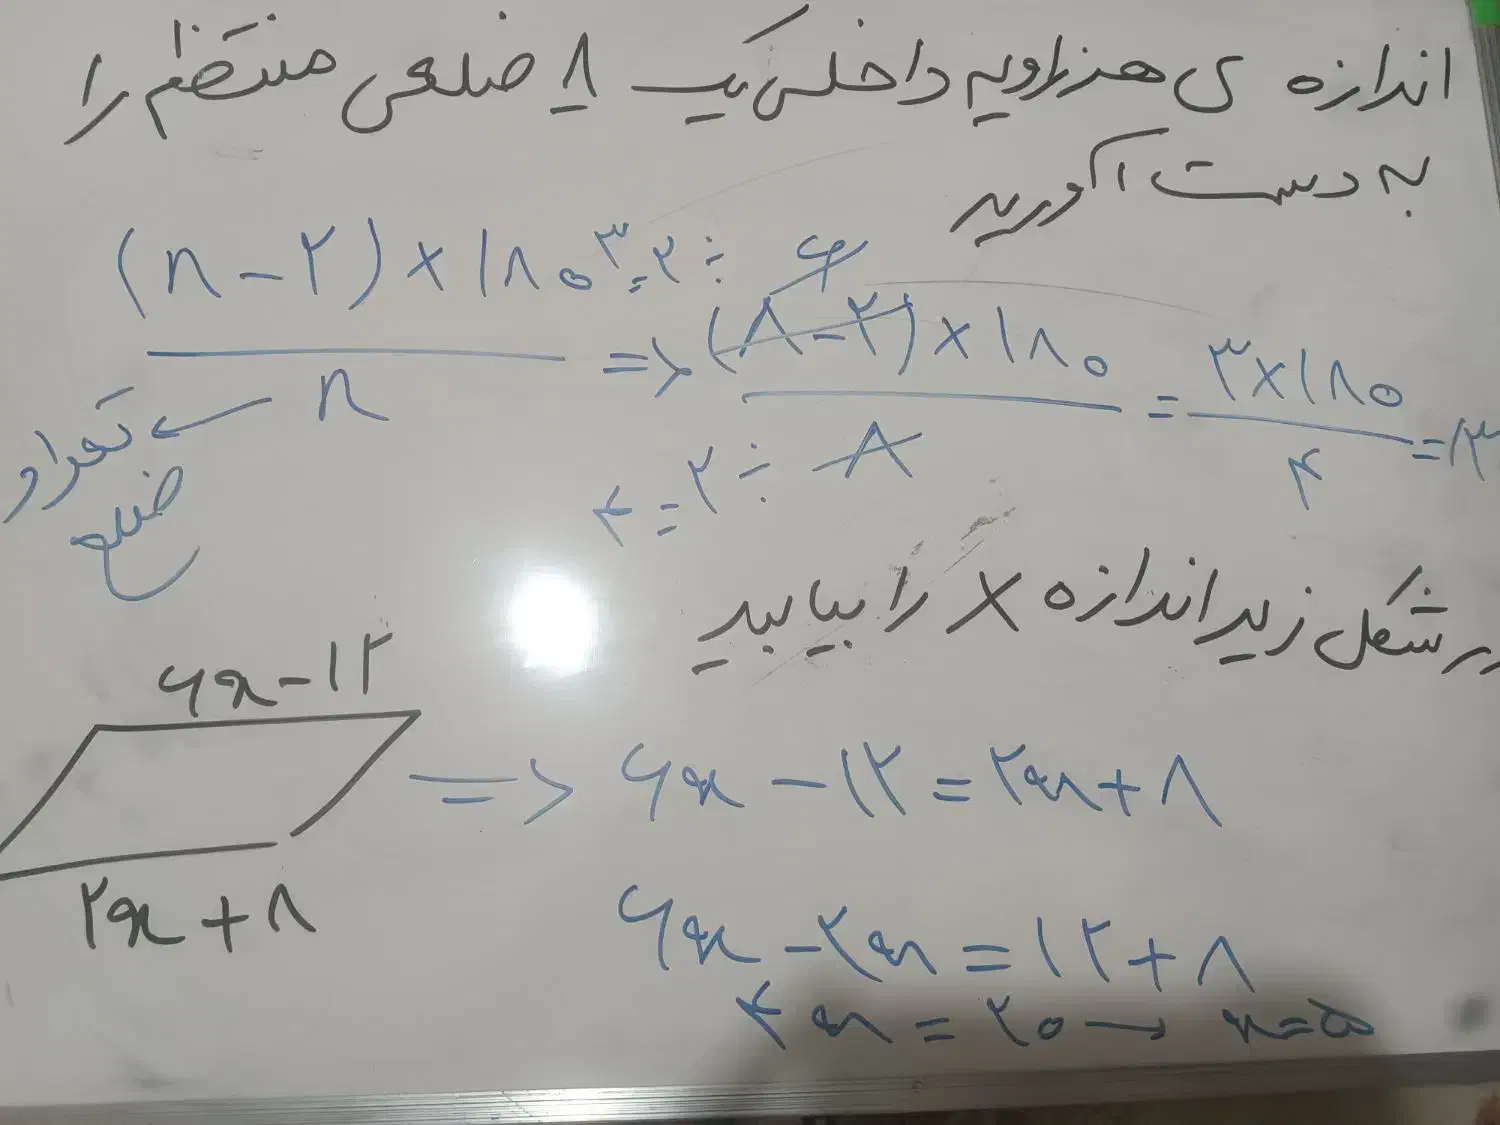 اندازه ی هر زاویه داخلی یک ۸ ضلعی منتظم را
به دست آورید
(n - ۲) × ۱۸۰
n
← تعداد
ضلع
۳ = ۲ ÷ ۶
=> (۸ - ۲) × ۱۸۰ = ۳ × ۱۸۰ = ۱۳
۴ = ۲ ÷ ۸
۴
در شکل زیر اندازه x را بیابید
۶x - ۱۲
=> ۶x - ۱۲ = ۲x + ۸
۲x + ۸
۶x - ۲x = ۱۲ + ۸
۴x = ۲۰ → x = ۵